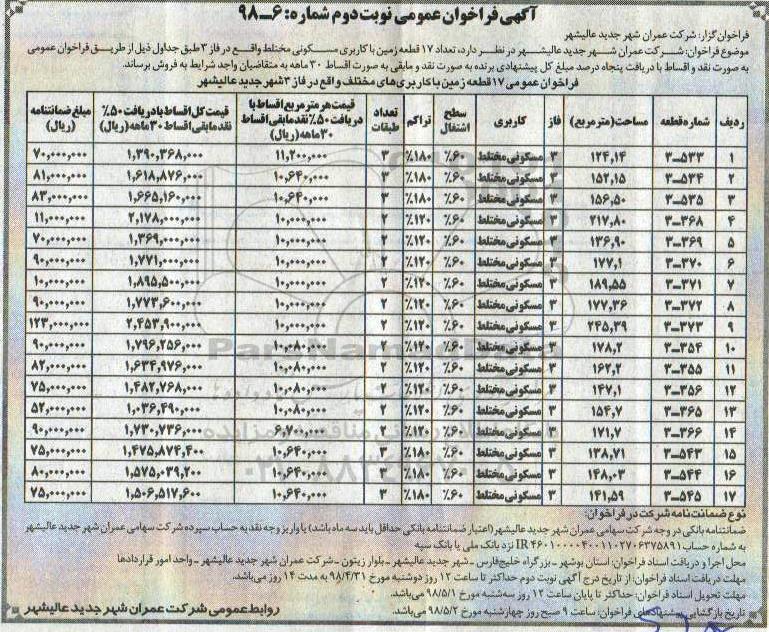 آگهی فراخوان عمومی نوبت دوم شماره: ۶ـ۹۸
فراخوان گزار: شرکت عمران شهر جدید عالیشهر
موضوع فراخوان: شرکت عمران شهر جدید عالیشهر در نظر دارد، تعداد ۱۷ قطعه زمین با کاربری مسکونی مختلط واقع در فاز ۳ طبق جداول ذیل از طریق فراخوان عمومی
به صورت نقد و اقساط با دریافت پنجاه درصد مبلغ کل پیشنهادی برنده به صورت نقد و مابقی به صورت اقساط ۳۰ ماهه به متقاضیان واجد شرایط به فروش برساند.
فراخوان عمومی ۱۷ قطعه زمین با کاربری‌های مختلف واقع در فاز ۳ شهر جدید عالیشهر
ردیف شماره قطعه مساحت (متر مربع) فاز کاربری سطح اشتغال تراکم تعداد طبقات قیمت هر متر مربع اقساط با دریافت ۵۰٪ نقد مابقی اقساط ۳۰ ماهه (ریال) قیمت کل اقساط با دریافت ۵۰٪ نقد مابقی اقساط ۳۰ ماهه (ریال) مبلغ ضمانتنامه (ریال)
۱ ۵۳۳ـ۳ ۱۲۴,۱۴ ۳ مسکونی مختلط ٪۶۰ ٪۱۸۰ ۳ ۱۱,۲۰۰,۰۰۰ ۱,۳۹۰,۳۶۸,۰۰۰ ۷۰,۰۰۰,۰۰۰
۲ ۵۳۴ـ۳ ۱۵۲,۱۵ ۳ مسکونی مختلط ٪۶۰ ٪۱۸۰ ۳ ۱۰,۶۴۰,۰۰۰ ۱,۶۱۸,۸۷۶,۰۰۰ ۸۱,۰۰۰,۰۰۰
۳ ۵۳۵ـ۳ ۱۵۶,۵۰ ۳ مسکونی مختلط ٪۶۰ ٪۱۸۰ ۳ ۱۰,۶۴۰,۰۰۰ ۱,۶۶۵,۱۶۰,۰۰۰ ۸۳,۰۰۰,۰۰۰
۴ ۳۶۸ـ۳ ۲۱۷,۸۰ ۳ مسکونی مختلط ٪۶۰ ٪۱۲۰ ۲ ۱۰,۰۰۰,۰۰۰ ۲,۱۷۸,۰۰۰,۰۰۰ ۱۱,۰۰۰,۰۰۰
۵ ۳۶۹ـ۳ ۱۳۶,۹۰ ۳ مسکونی مختلط ٪۶۰ ٪۱۲۰ ۲ ۱۰,۰۰۰,۰۰۰ ۱,۳۶۹,۰۰۰,۰۰۰ ۷۰,۰۰۰,۰۰۰
۶ ۳۷۰ـ۳ ۱۷۷,۱ ۳ مسکونی مختلط ٪۶۰ ٪۱۲۰ ۲ ۱۰,۰۰۰,۰۰۰ ۱,۷۷۱,۰۰۰,۰۰۰ ۹۰,۰۰۰,۰۰۰
۷ ۳۷۱ـ۳ ۱۸۹,۵۵ ۳ مسکونی مختلط ٪۶۰ ٪۱۲۰ ۲ ۱۰,۰۰۰,۰۰۰ ۱,۸۹۵,۵۰۰,۰۰۰ ۱۰,۰۰۰,۰۰۰
۸ ۳۷۲ـ۳ ۱۷۷,۳۶ ۳ مسکونی مختلط ٪۶۰ ٪۱۲۰ ۲ ۱۰,۰۰۰,۰۰۰ ۱,۷۷۳,۶۰۰,۰۰۰ ۹۰,۰۰۰,۰۰۰
۹ ۳۷۳ـ۳ ۲۴۵,۳۹ ۳ مسکونی مختلط ٪۶۰ ٪۱۲۰ ۲ ۱۰,۰۰۰,۰۰۰ ۲,۴۵۳,۹۰۰,۰۰۰ ۱۲۳,۰۰۰,۰۰۰
۱۰ ۳۵۴ـ۳ ۱۷۸,۲ ۳ مسکونی مختلط ٪۶۰ ٪۱۲۰ ۲ ۱۰,۰۸۰,۰۰۰ ۱,۷۹۶,۲۵۶,۰۰۰ ۹۰,۰۰۰,۰۰۰
۱۱ ۳۵۵ـ۳ ۱۶۲,۲ ۳ مسکونی مختلط ٪۶۰ ٪۱۲۰ ۲ ۱۰,۰۸۰,۰۰۰ ۱,۶۳۴,۹۷۶,۰۰۰ ۸۲,۰۰۰,۰۰۰
۱۲ ۳۵۶ـ۳ ۱۴۷,۱ ۳ مسکونی مختلط ٪۶۰ ٪۱۲۰ ۲ ۱۰,۰۸۰,۰۰۰ ۱,۴۸۲,۷۶۸,۰۰۰ ۷۵,۰۰۰,۰۰۰
۱۳ ۳۶۵ـ۳ ۱۵۴,۷ ۳ مسکونی مختلط ٪۶۰ ٪۱۲۰ ۲ ۱۰,۰۸۰,۰۰۰ ۱,۰۳۶,۴۹۰,۰۰۰ ۵۲,۰۰۰,۰۰۰
۱۴ ۳۶۶ـ۳ ۱۷۱,۷ ۳ مسکونی مختلط ٪۶۰ ٪۱۲۰ ۲ ۶,۷۰۰,۰۰۰ ۱,۷۳۰,۷۳۶,۰۰۰ ۹۰,۰۰۰,۰۰۰
۱۵ ۵۴۳ـ۳ ۱۳۸,۷۱ ۳ مسکونی مختلط ٪۶۰ ٪۱۸۰ ۳ ۱۰,۶۴۰,۰۰۰ ۱,۴۷۵,۸۷۴,۴۰۰ ۷۵,۰۰۰,۰۰۰
۱۶ ۵۴۴ـ۳ ۱۴۸,۰۳ ۳ مسکونی مختلط ٪۶۰ ٪۱۸۰ ۳ ۱۰,۶۴۰,۰۰۰ ۱,۵۷۵,۰۳۹,۲۰۰ ۸۰,۰۰۰,۰۰۰
۱۷ ۵۴۵ـ۳ ۱۴۱,۵۹ ۳ مسکونی مختلط ٪۶۰ ٪۱۸۰ ۳ ۱۰,۶۴۰,۰۰۰ ۱,۵۰۶,۵۱۷,۶۰۰ ۷۵,۰۰۰,۰۰۰
نوع ضمانت نامه شرکت در فراخوان:
ضمانتنامه بانکی در وجه شرکت سهامی عمران شهر جدید عالیشهر (اعتبار ضمانتنامه بانکی حداقل باید سه ماه باشد) یا واریز وجه نقد به حساب سپرده شرکت سهامی عمران شهر جدید عالیشهر
به شماره حساب IR۴۶۰۱۰۰۰۰۴۰۰۱۱۰۲۷۰۶۳۷۵۸۹۱ نزد بانک ملی یا بانک سپه
محل اجرا و دریافت اسناد فراخوان: استان بوشهر ـ بزرگراه خلیج فارس ـ شهر جدید عالیشهر ـ بلوار زیتون ـ شرکت عمران شهر جدید عالیشهر ـ واحد امور قراردادها
مهلت دریافت اسناد فراخوان: از تاریخ درج آگهی نوبت دوم حداکثر تا ساعت ۱۲ روز دوشنبه مورخ ۹۸/۴/۳۱ به مدت ۱۴ روز می‌باشد.
مهلت تحویل اسناد فراخوان: حداکثر تا پایان ساعت ۱۲ روز سه‌شنبه مورخ ۹۸/۵/۱ می‌باشد.
تاریخ بازگشایی پیشنهادهای فراخوان: ساعت ۹ صبح روز چهارشنبه مورخ ۹۸/۵/۲ می‌باشد.
روابط عمومی شرکت عمران شهر جدید عالیشهر